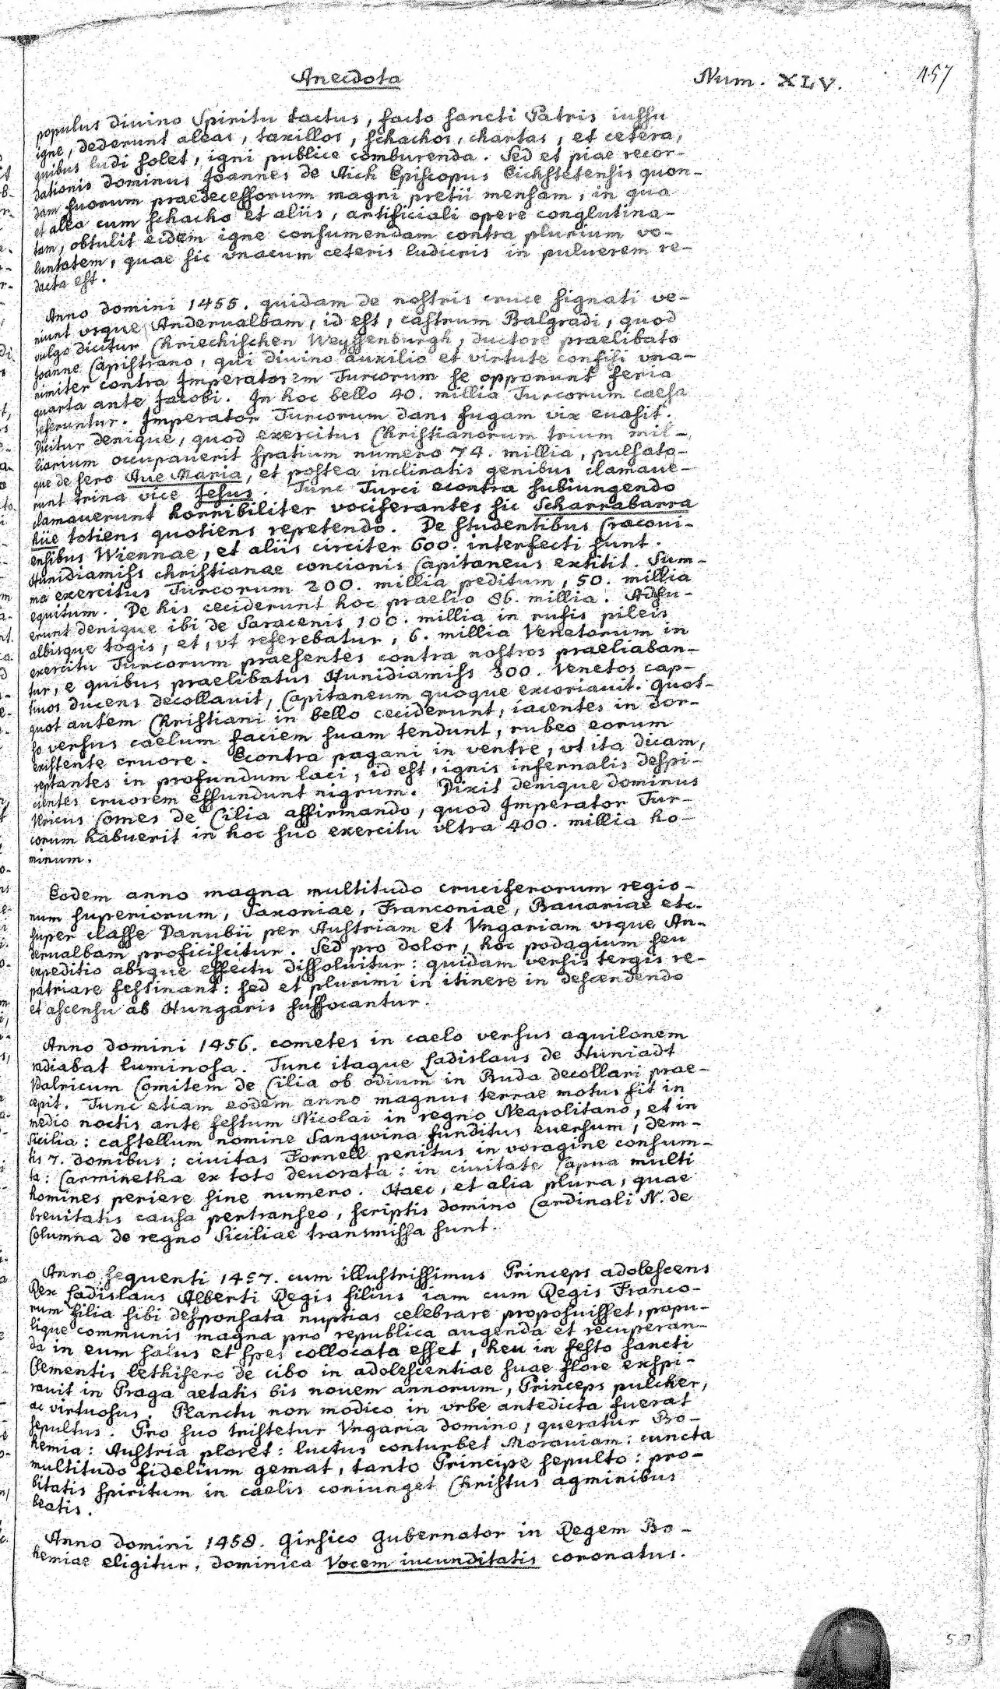 Anecdota
Num. XLV.
457
populus divino Spiritu tactus, facto sancti Patris iussu
igne, dederunt aleas, taxillos, schachos, chartas, et cetera,
quibus ludi solet, igni publice comburenda. Sed et piae recor-
dationis dominus Joannes de Aich Episcopus Eichstetensis quon-
dam suorum praedecessorum magni pretii mensam, in qua
et alea cum schacho et aliis, artificiali opere conglutina-
tam, obtulit eidem igne consumendam contra plurium vo-
luntatem, quae sic vnacum ceteris ludicris in puluerem re-
dacta est.
Anno domini 1455. quidam de nostris cruce signati ve-
niunt vsque Anderualbam, id est, castrum Balgradi, quod
vulgo dicitur Chriechischen Weyssenburgh, ductore praelibato
Joanne Capistrano, qui divino auxilio et virtute confisi vna-
nimiter contra Imperatorem Turcorum se opponunt feria
quarta ante Jacobi. In hoc bello 40. millia Turcorum caesa
feferuntur. Imperator Turcorum dans fugam vix evasit.
Dicitur denique, quod exercitus Christianorum trium mil-
liarium occupauerit spatium numero 74. millia, pulsato-
que de sero Aue Maria, et postea inclinatis genibus clamaue-
runt trina vice Jesus. Tunc Turci econtra subiungendo
clamauerunt horribiliter vociferantes sic Scharrabarra
hüe totiens quotiens repetendo. De studentibus Cracoui-
ensibus Wiennae, et aliis circiter 600. interfecti sunt.
Hunidiamiss christianae concionis Capitaneus extitit. Sum-
ma exercitus Turcorum 200. millia peditum, 50. millia
equitum. De his ceciderunt hoc praelio 86. millia. Adfu-
erunt denique ibi de Saracenis 100. millia in rufis pileis
albisque togis, et, vt referebatur, 6. millia Venetorum in
exercitu Turcorum praesentes contra nostros praeliaban-
tur, e quibus praelibatus Hunidiamiss 300. Venetos cap-
tiuos ducens decollauit, Capitaneum quoque excoriauit. Quot-
quot autem Christiani in bello ceciderunt, iacentes in dor-
so versus caelum faciem suam tendunt, rubeo eorum
existente cruore. Econtra pagani in ventre, vt ita dicam,
reptantes in profundum laci, id est, ignis infernalis despi-
cientes cruorem effundunt nigrum. Dixit denique dominus
Vlricus Comes de Cilia affirmando, quod Imperator Tur-
corum habuerit in hoc suo exercitu vltra 400. millia ho-
minum.
Eodem anno magna multitudo cruciferorum regio-
num superiorum, Saxoniae, Franconiae, Bauariae etc.
super classe Danubii per Austriam et Vngariam vsque An-
derualbam proficiscitur. Sed pro dolor, hoc podagium seu
expeditio absque effectu dissoluitur: quidam versis tergis re-
patriare festinant: sed et plurimi in itinere in descendendo
et ascensu ab Hungaris suffocantur.
Anno domini 1456. cometes in caelo versus aquilonem
radiabat luminosa. Tunc itaque Ladislaus de Huniadt
Vdalricum Comitem de Cilia ob odium in Buda decollari prae-
cepit. Tunc etiam eodem anno magnus terrae motus fit in
medio noctis ante festum Nicolai in regno Neapolitano, et in
Sicilia: castellum nomine Sangwina funditus euersum, dem-
tis 7. domibus: ciuitas Fornell penitus in voragine consum-
ta: Carminetha ex toto deuorata: in ciuitate Capua multi
homines periere sine numero. Haec, et alia plura, quae
breuitatis causa pertranseo, scriptis domino Cardinali N. de
Columna de regno Siciliae transmissa sunt.
Anno sequenti 1457. cum illustrissimus Princeps adolescens
Rex Ladislaus Alberti Regis filius iam cum Regis Franco-
rum filia sibi desponsata nuptias celebrare proposuisset, popu-
lique communis magna pro republica augenda et recuperan-
da in eum salus et spes collocata esset, heu in festo sancti
Clementis lethifero de cibo in adolescentiae suae flore exspi-
rauit in Praga aetatis bis nouem annorum, Princeps pulcher,
ac virtuosus. Planctu non modico in vrbe antedicta fuerat
sepultus. Pro suo tristetur Vngaria domino, queratur Bo-
hemia: Austria ploret: luctus conturbet Morauiam: cuncta
multitudo fidelium gemat, tanto Principe sepulto: pro-
bitatis spiritum in caelis coniunget Christus agminibus
beatis.
Anno domini 1458. Girsico Gubernator in Regem Bo-
hemiae eligitur, dominica Vocem iucunditatis coronatus.